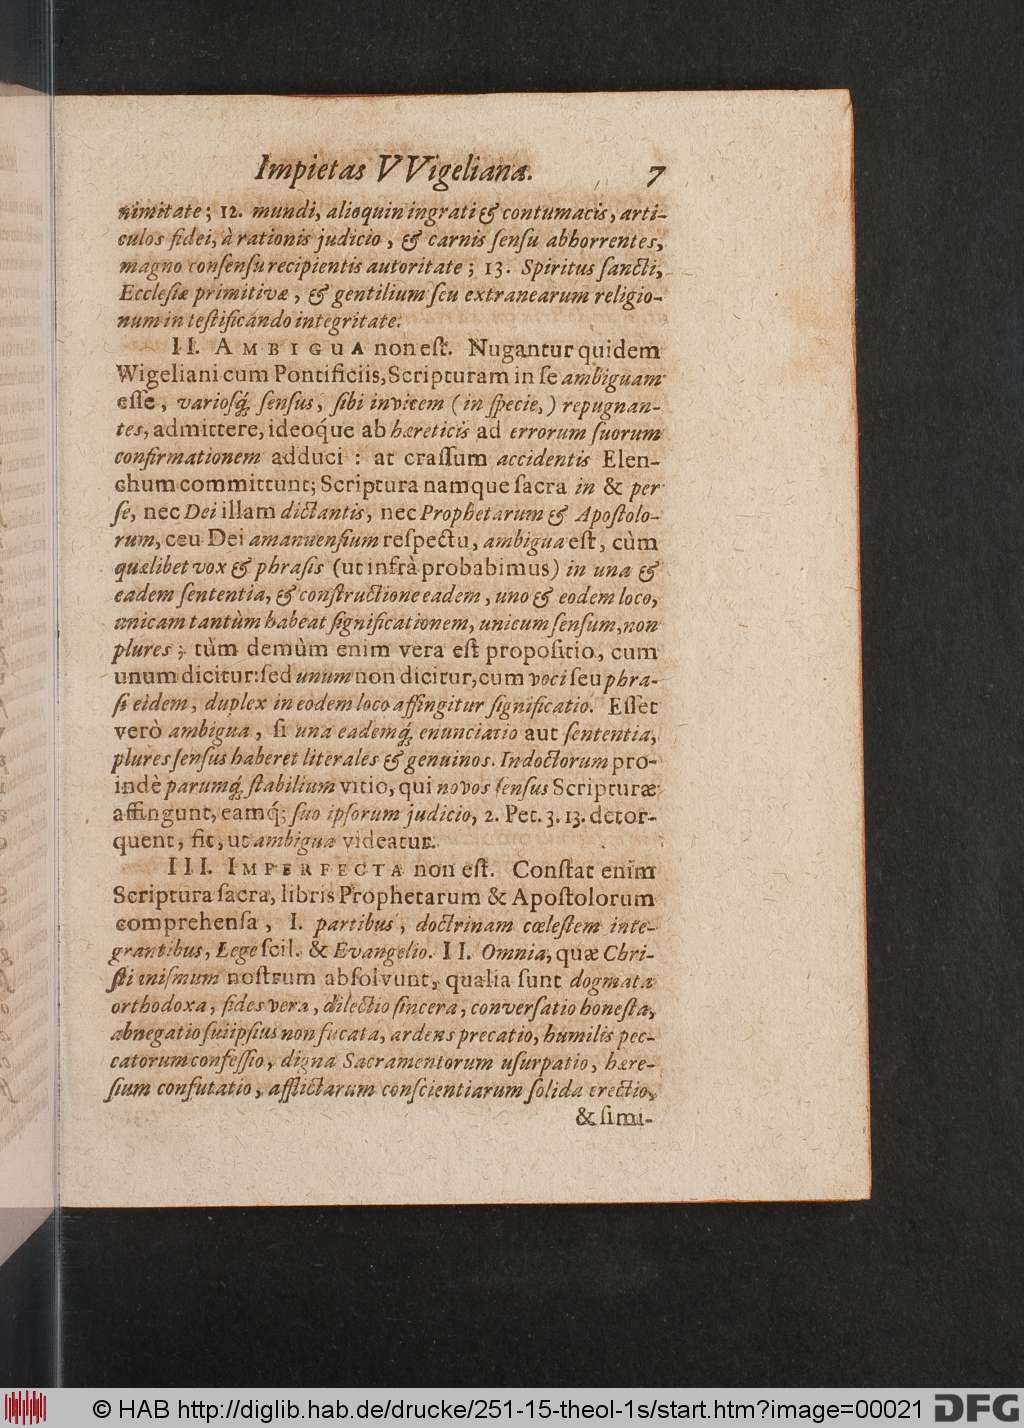 Impietas VVigeliana. 7
nimitate; 12. mundi, alioquin ingrati & contumacis, arti-
culos fidei, à rationis judicio, & carnis ſenſu abhorrentes,
magno conſenſu recipientis autoritate; 13. Spiritus ſancti,
Eccleſiæ primitivæ, & gentilium ſeu extranearum religio-
num in teſtificando integritate.
II. AMBIGUA non eſt. Nugantur quidem
Wigeliani cum Pontificiis, Scripturam in ſe ambiguam
eſſe, varioſq́; ſenſus, ſibi invicem (in ſpecie,) repugnan-
tes, admittere, ideoq́ue ab hæreticis ad errorum ſuorum
confirmationem adduci : at craſſum accidentis Elen-
chum committunt; Scriptura namque ſacra in & per
ſe, nec Dei illam dictantis, nec Prophetarum & Apoſtolo-
rum, ceu Dei amanuenſium reſpectu, ambigua eſt, cùm
quælibet vox & phraſis (ut infrà probabimus) in una &
eadem ſententia, & conſtructione eadem, uno & eodem loco,
unicam tantùm habeat ſignificationem, unicum ſenſum, non
plures; tùm demùm enim vera eſt propoſitio, cum
unum dicitur: ſed unum non dicitur, cum voci ſeu phra-
ſi eidem, duplex in eodem loco affingitur ſignificatio. Eſſet
verò ambigua, ſi una eademq́; enunciatio aut ſententia,
plures ſenſus haberet literales & genuinos. Indoctorum pro-
indè parumq́; ſtabilium vitio, qui novos ſenſus Scripturæ
affingunt, eamq́; ſuo ipſorum judicio, 2. Pet. 3. 13. detor-
quent, fit, ut ambigua videatur.
III. IMPERFECTA non eſt. Conſtat enim
Scriptura ſacra, libris Prophetarum & Apoſtolorum
comprehenſa, I. partibus, doctrinam cœleſtem inte-
grantibus, Lege ſcil. & Evangelio. II. Omnia, quæ Chri-
ſtianiſmum noſtrum abſolvunt, qualia ſunt dogmata
orthodoxa, fides vera, dilectio ſincera, converſatio honeſta,
abnegatio ſuiipſius non fucata, ardens precatio, humilis pec-
catorum confeſſio, digna Sacramentorum uſurpatio, hære-
ſium confutatio, afflictarum conſcientiarum ſolida erectio,
& ſimi-
© HAB http://diglib.hab.de/drucke/251-15-theol-1s/start.htm?image=00021
DFG